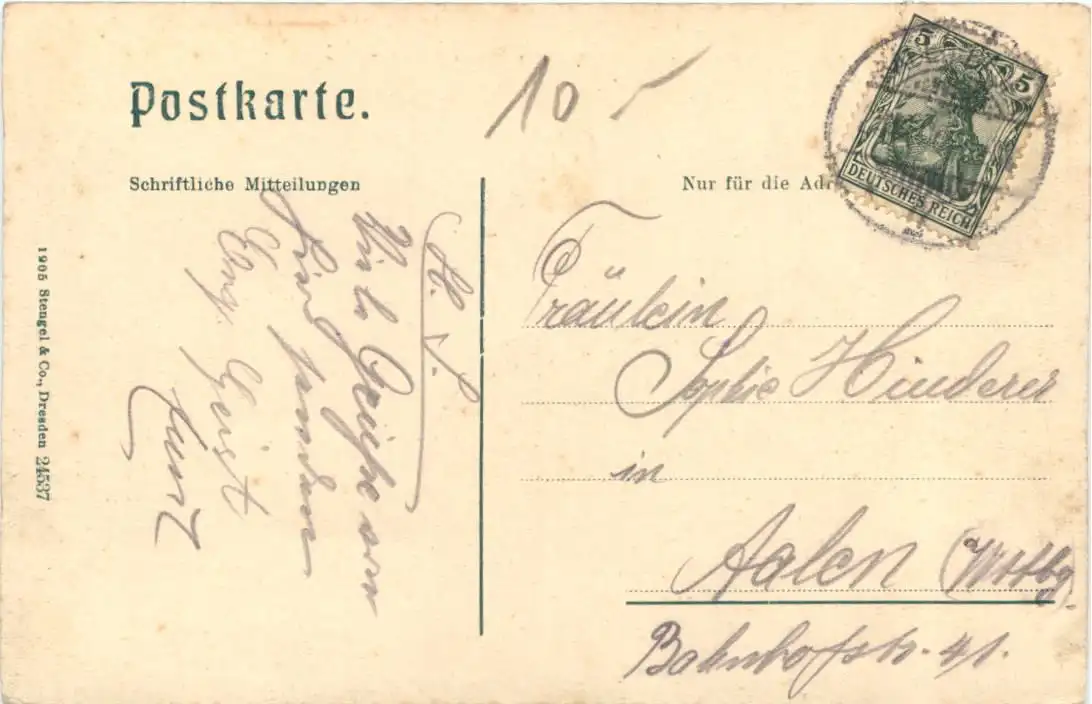 Postkarte.
10
Schriftliche Mitteilungen
Nur für die Adr
5 5
DEUTSCHES REICH
Viele Grüße von
Kurt
Fräulein
Sophie Hinderer
in
Aalen (Wttbg).
Bahnhofstr. 41.
1905 Stengel & Co., Dresden 24537